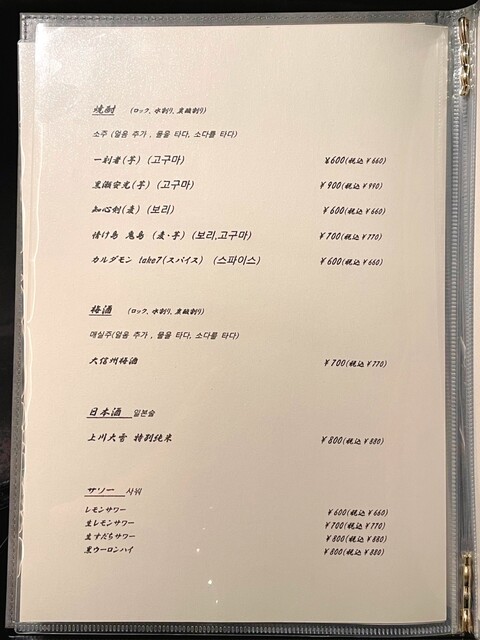 焼酎 (ロック, 水割り, 炭酸割り)
소주 (얼음 추가 , 물을 타다, 소다를 타다)
一刻者(芋) (고구마) ¥600(税込 ¥660)
黒瀬安光(芋) (고구마) ¥900(税込 ¥990)
知心剣(麦) (보리) ¥600(税込 ¥660)
情け島 鬼島 (麦・芋) (보리,고구마) ¥700(税込 ¥770)
カルダモン take7(スパイス) (스파이스) ¥600(税込 ¥660)
梅酒 (ロック, 水割り, 炭酸割り)
매실주(얼음 추가 , 물을 타다, 소다를 타다)
大信州梅酒 ¥700(税込 ¥770)
日本酒 일본술
上川大雪 特別純米 ¥800(税込 ¥880)
サワー 사워
レモンサワー ¥600(税込 ¥660)
生レモンサワー ¥700(税込 ¥770)
生すだちサワー ¥800(税込 ¥880)
黒ウーロンハイ ¥800(税込 ¥880)